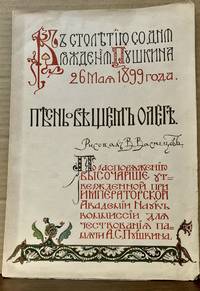 Къ столѣтію со дня
рожденія Пушкина
26 Мая 1899 года.
Пѣснь о вѣщемъ Олегѣ.
Рисовалъ В. Васнецовъ.
По распоряженію
высочайше ут-
вержденной при
императорской
Академіи Наукъ
коммиссіи для
чествованія па-
мяти А.С. Пушкина.